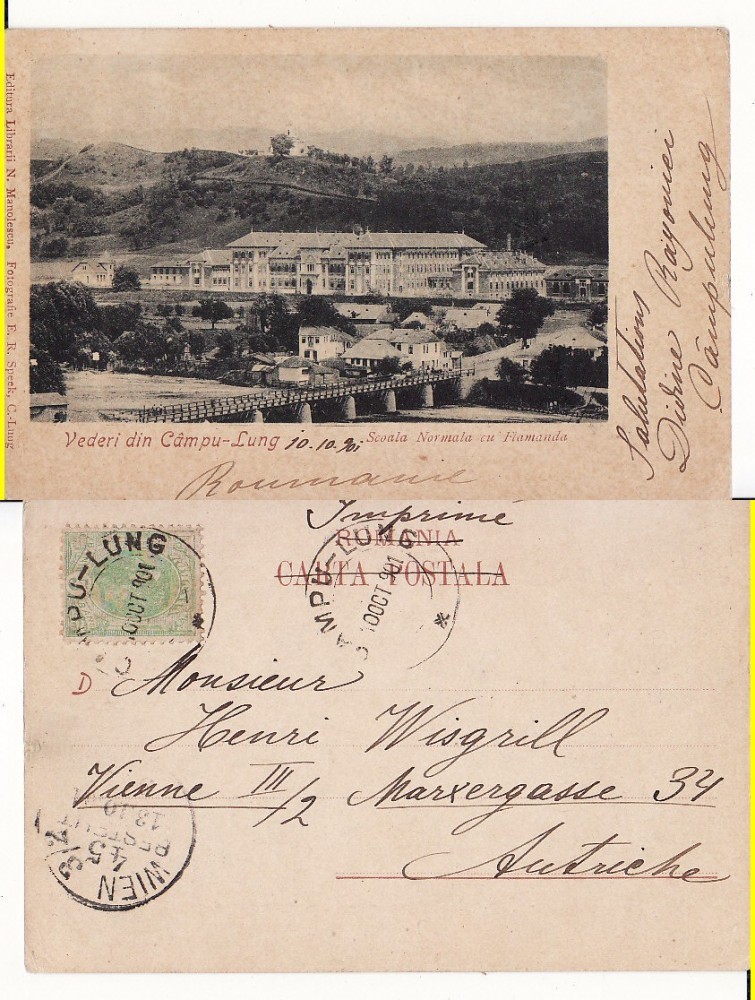 Editura Librarii N. Manolescu, Fotografie E. R. Speek, C.-Lung
Vederi din Câmpu-Lung 10.10.901 Scoala Normala cu Flamanda
Roumanie
Salutations
Divine
Câmpulung
Imprimé
ROMANIA
CARTA POSTALA
CAMPU-LUNG
10 OCT 901
CAMPU-LUNG
10 OCT 901
D Monsieur
Henri Wisgrill
Vienne III/2 Marxergasse 34
Autriche
WIEN
45
BESTELLT